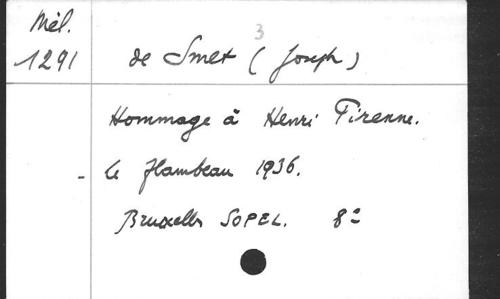 Mél.
1291
3
de Smet (Joseph)
Hommage à Henri Pirenne.
- Le Flambeau 1936.
Bruxelles SOPEL. 8º